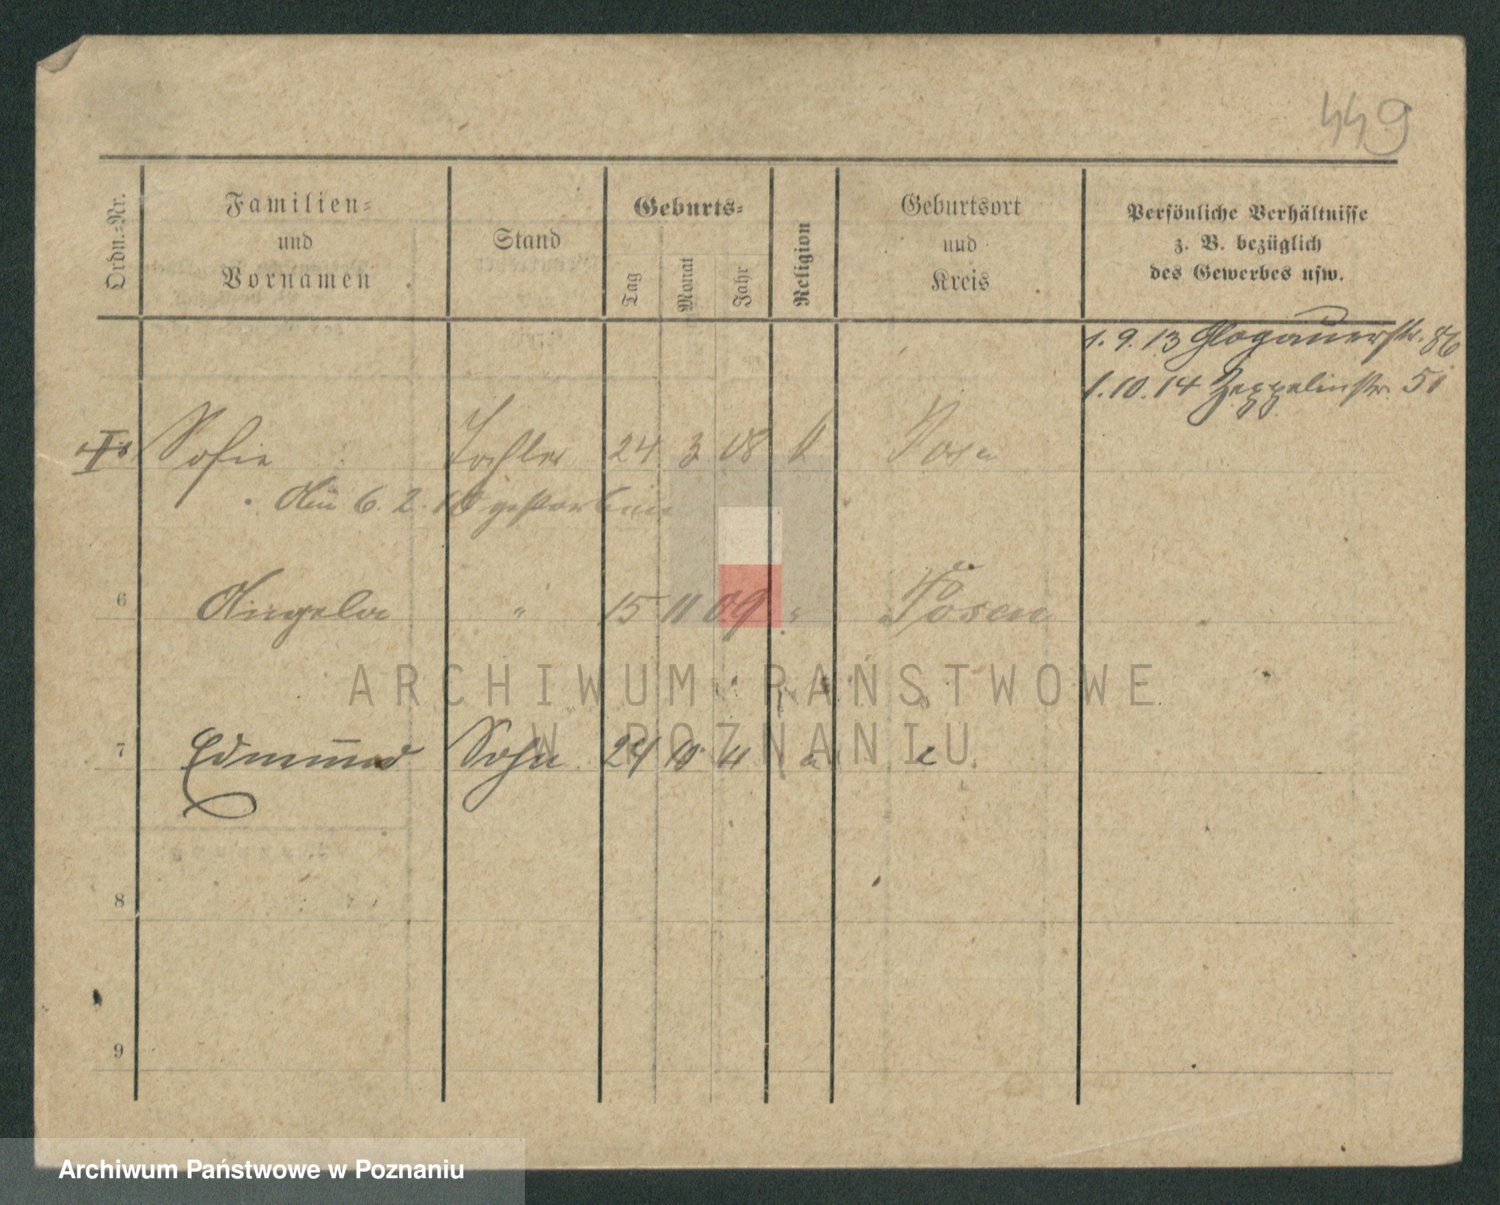 449
Ordn.-Nr.
Familien-
und
Vornamen
Stand
Geburts-
Tag
Monat
Jahr
Religion
Geburtsort
und
Kreis
Persönliche Verhältnisse
z. B. bezüglich
des Gewerbes usw.
1. 9. 13 Glogauerstr. 86
1. 10. 14 Zeppelinstr. 51
Sofie Tochter 24 3 08 k Posen
6. 2. gestorben
6 Angela " 15 11 09 " Posen
7 Edmund Sohn 24 10 11
8
9
ARCHIWUM PAŃSTWOWE
W POZNANIU
Archiwum Państwowe w Poznaniu